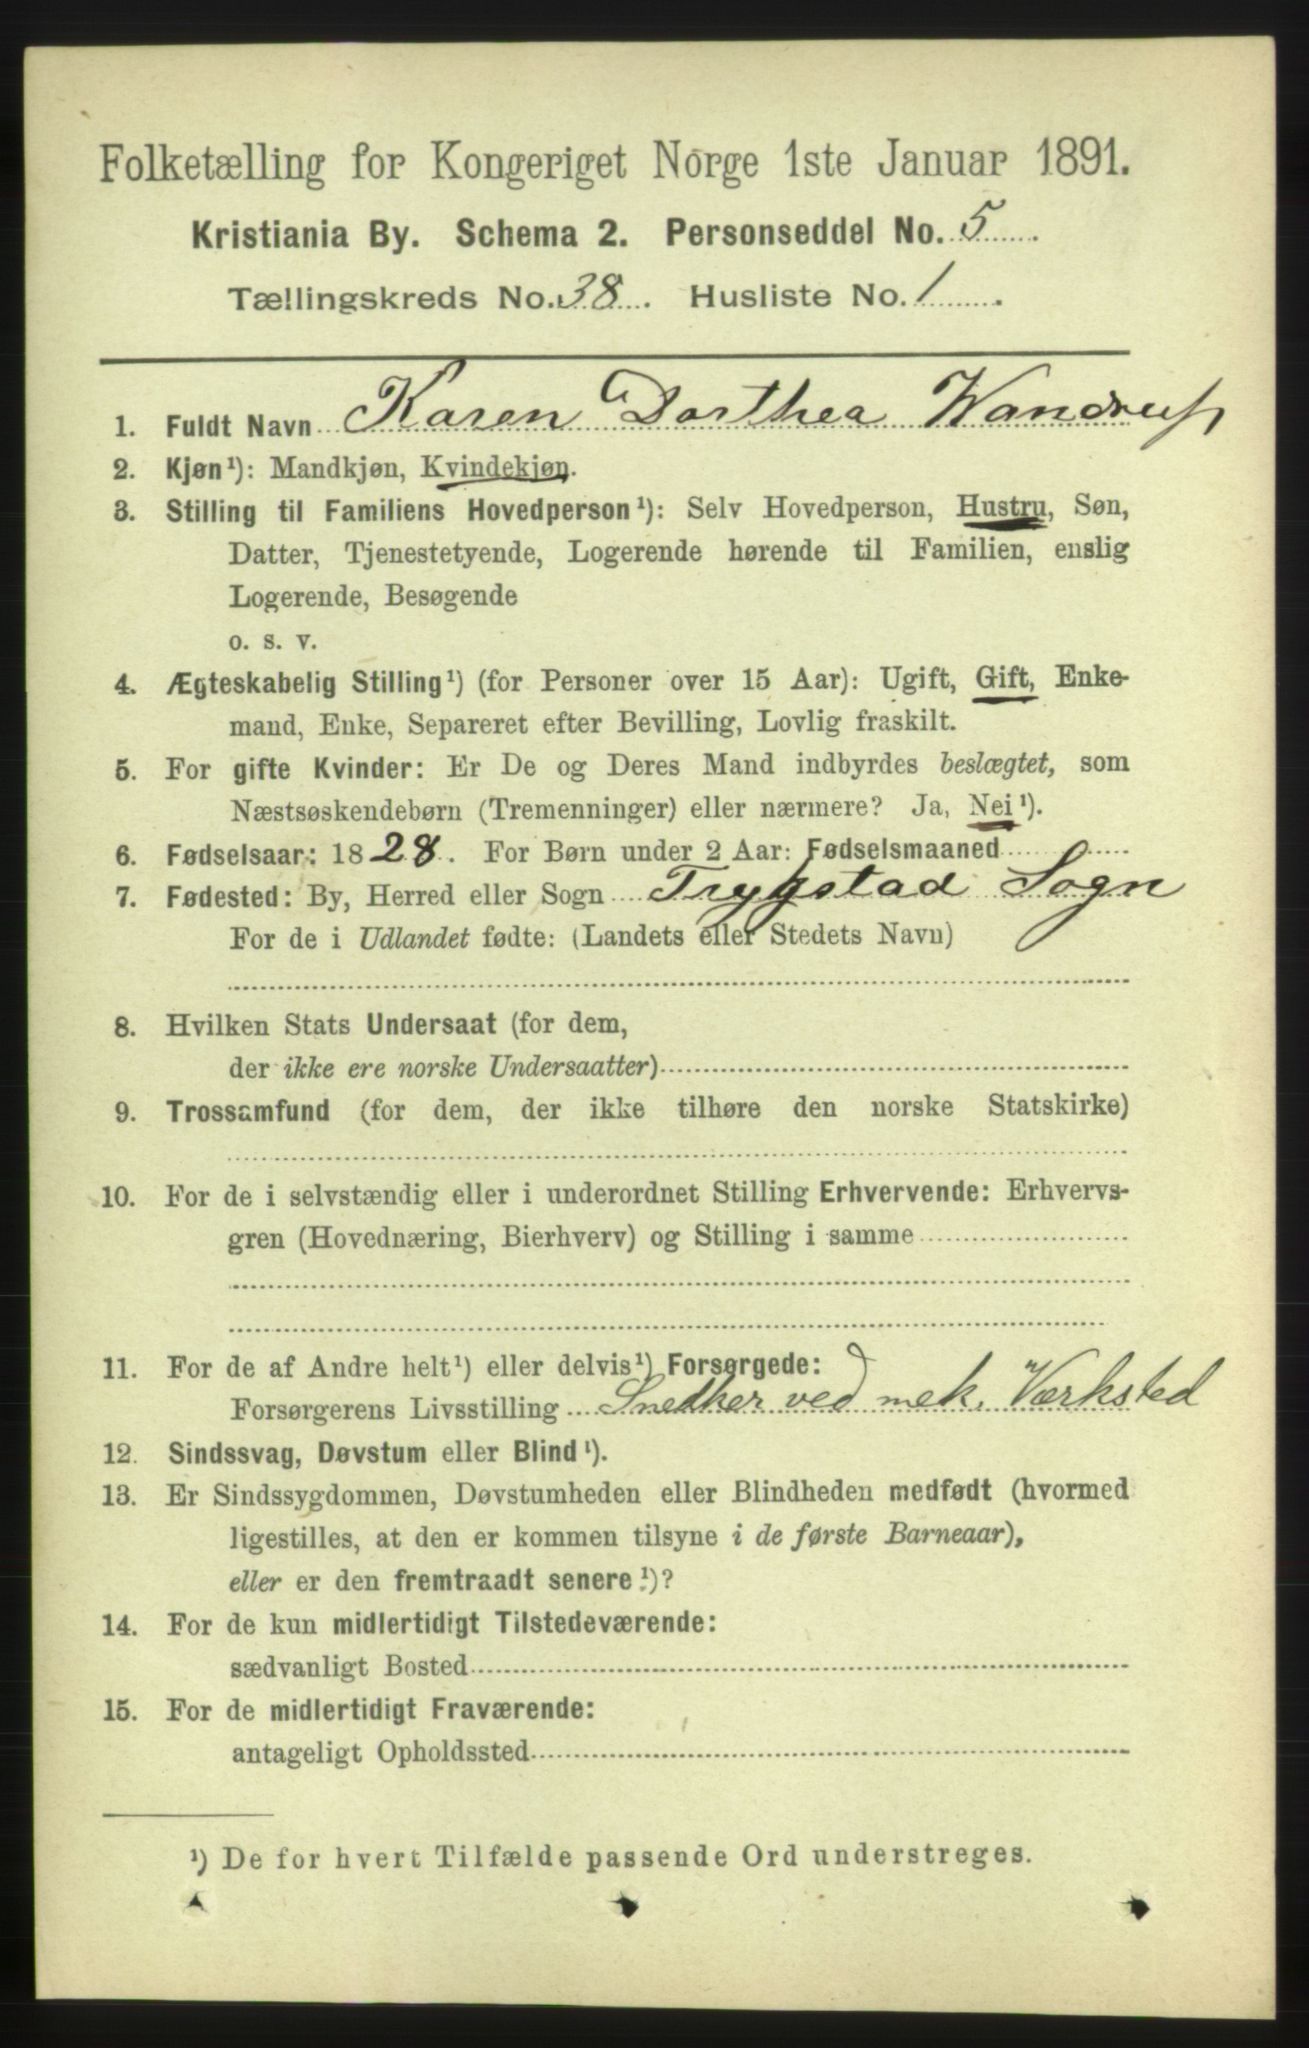 Folketælling for Kongeriget Norge 1ste Januar 1891.
Kristiania By. Schema 2. Personseddel No. 5.
Tællingskreds No. 38. Husliste No. 1.
1. Fuldt Navn Karen Dorthea Wandrup
2. Kjøn¹): Mandkjøn, Kvindekjøn.
3. Stilling til Familiens Hovedperson¹): Selv Hovedperson, Hustru, Søn,
Datter, Tjenestetyende, Logerende hørende til Familien, enslig
Logerende, Besøgende
o. s. v.
4. Ægteskabelig Stilling¹) (for Personer over 15 Aar): Ugift, Gift, Enke-
mand, Enke, Separeret efter Bevilling, Lovlig fraskilt.
5. For gifte Kvinder: Er De og Deres Mand indbyrdes beslægtet, som
Næstsøskendebørn (Tremenninger) eller nærmere? Ja, Nei¹).
6. Fødselsaar: 1828. For Børn under 2 Aar: Fødselsmaaned
7. Fødested: By, Herred eller Sogn Trygstad Sogn
For de i Udlandet fødte: (Landets eller Stedets Navn)
8. Hvilken Stats Undersaat (for dem,
der ikke ere norske Undersaatter)
9. Trossamfund (for dem, der ikke tilhøre den norske Statskirke)
10. For de i selvstændig eller i underordnet Stilling Erhvervende: Erhvervs-
gren (Hovednæring, Bierhverv) og Stilling i samme
11. For de af Andre helt¹) eller delvis¹) Forsørgede:
Forsørgerens Livsstilling Snedker ved mek. Værksted
12. Sindssvag, Døvstum eller Blind¹).
13. Er Sindssygdommen, Døvstumheden eller Blindheden medfødt (hvormed
ligestilles, at den er kommen tilsyne i de første Barneaar),
eller er den fremtraadt senere¹)?
14. For de kun midlertidigt Tilstedeværende:
sædvanligt Bosted
15. For de midlertidigt Fraværende:
antageligt Opholdssted
¹) De for hvert Tilfælde passende Ord understreges.